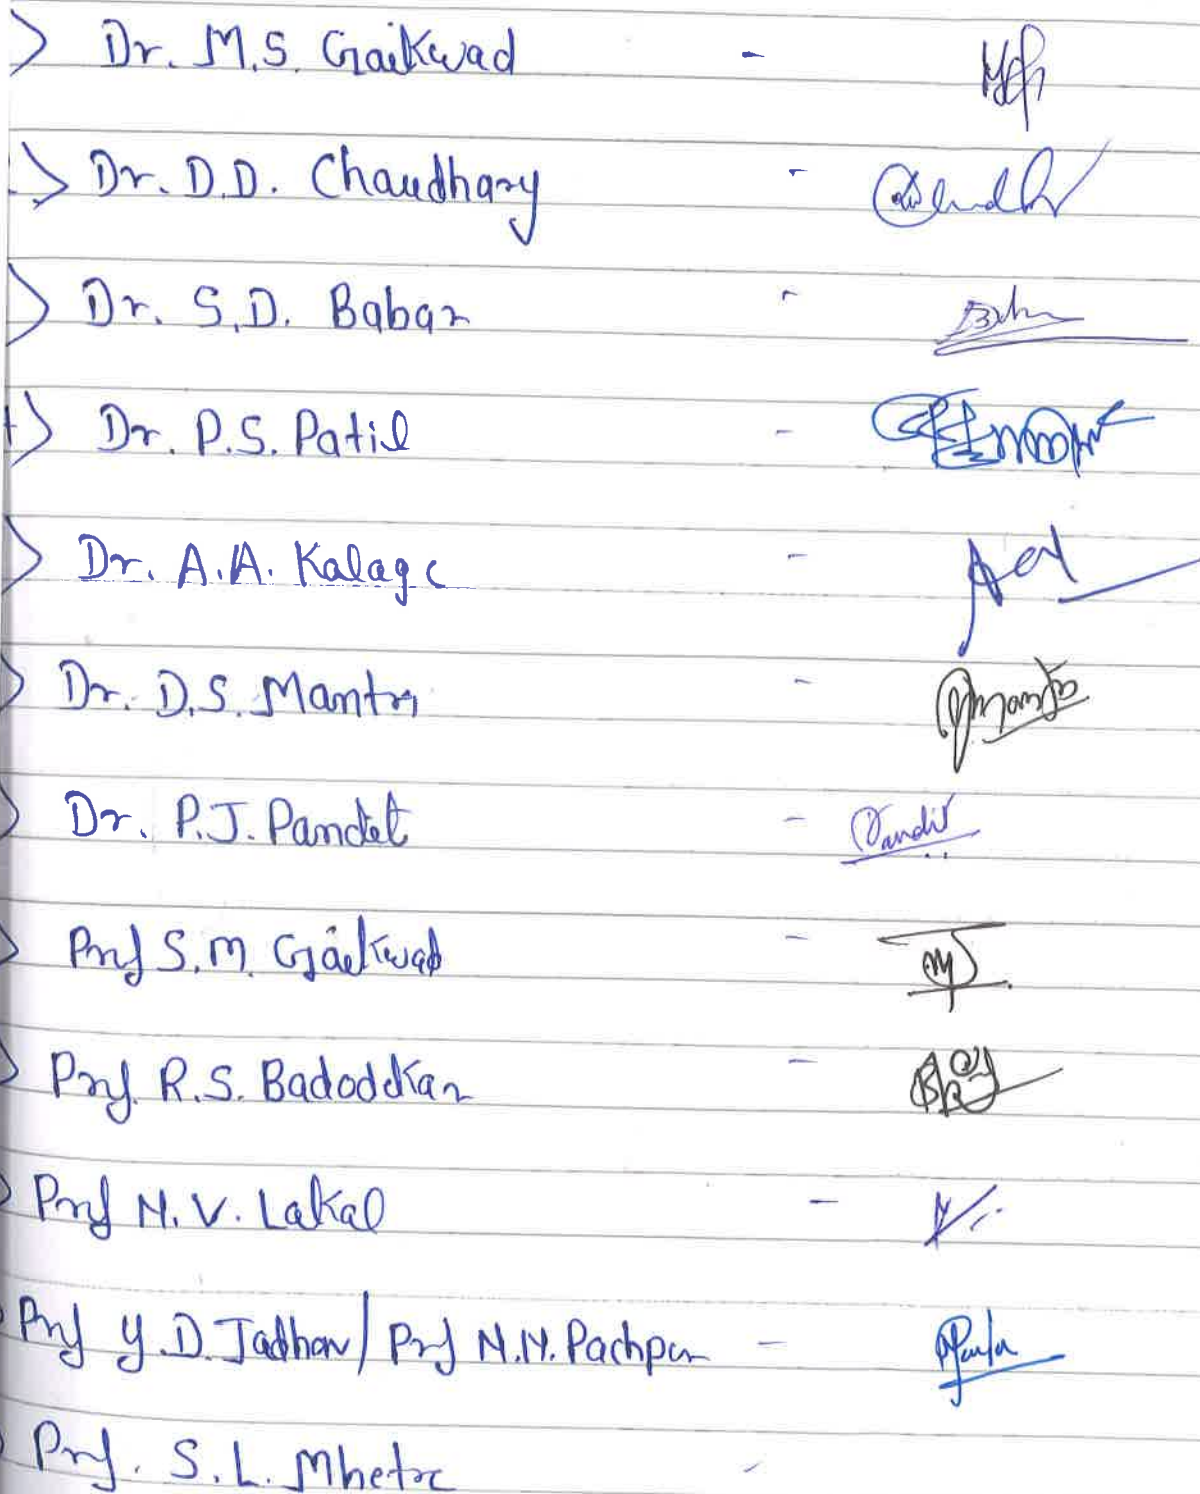 > Dr. M.S. Gaikwad -
> Dr. D.D. Chaudhary -
> Dr. S.D. Babar -
> Dr. P.S. Patil -
> Dr. A.A. Kalage -
> Dr. D.S. Mantri -
> Dr. P.J. Pandit - Pandit
> Prof S.M. Gaikwad -
> Prof. R.S. Badodekar -
> Prof N.V. Lakal -
Prof Y.D. Jadhav / Prof N.N. Pachpor -
Prof. S.L. Mhetre -